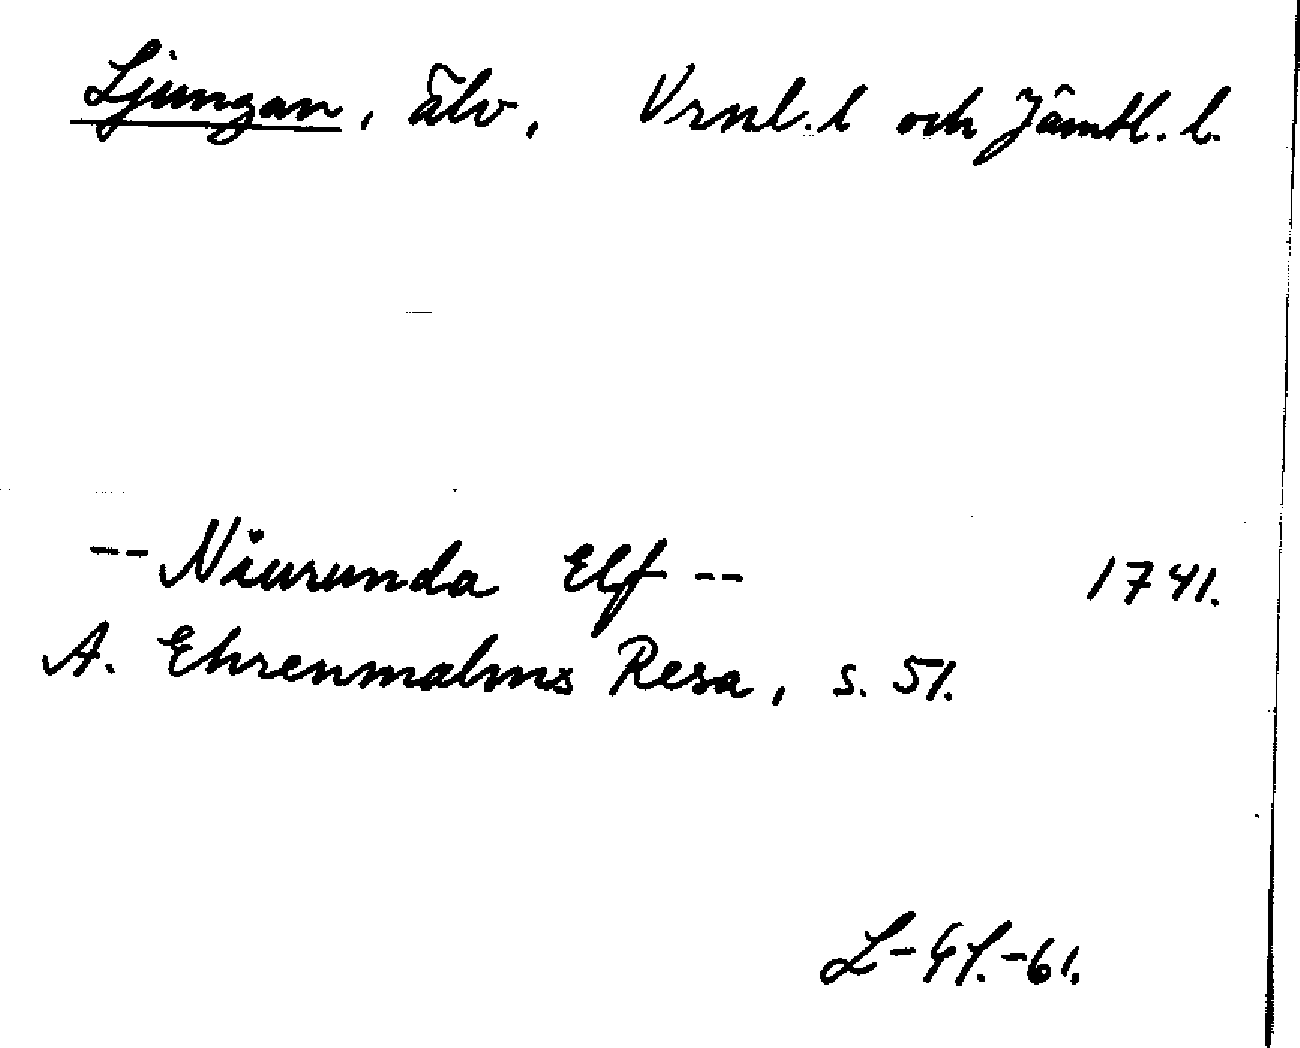 Ljungan, älv, Vrnl. l och Jämtl. l.
-- Niurunda Elf -- 1741.
A. Ehrenmalms Resa, s. 51.
L-41.-61.